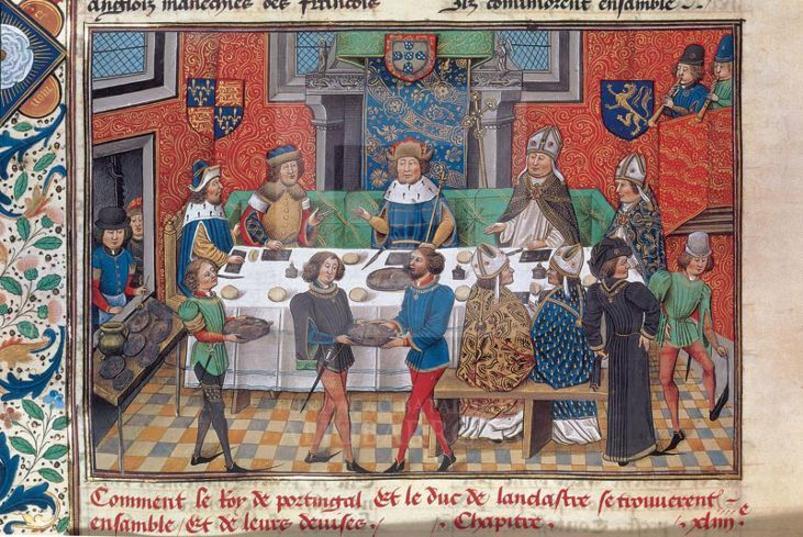 anglois manechies des francois
Ilz commorent ensamble
Comment le Roy de portingal Et le duc de lanclastre se trouverent
ensamble / Et de leurs devises. Chapitre. xliiii e